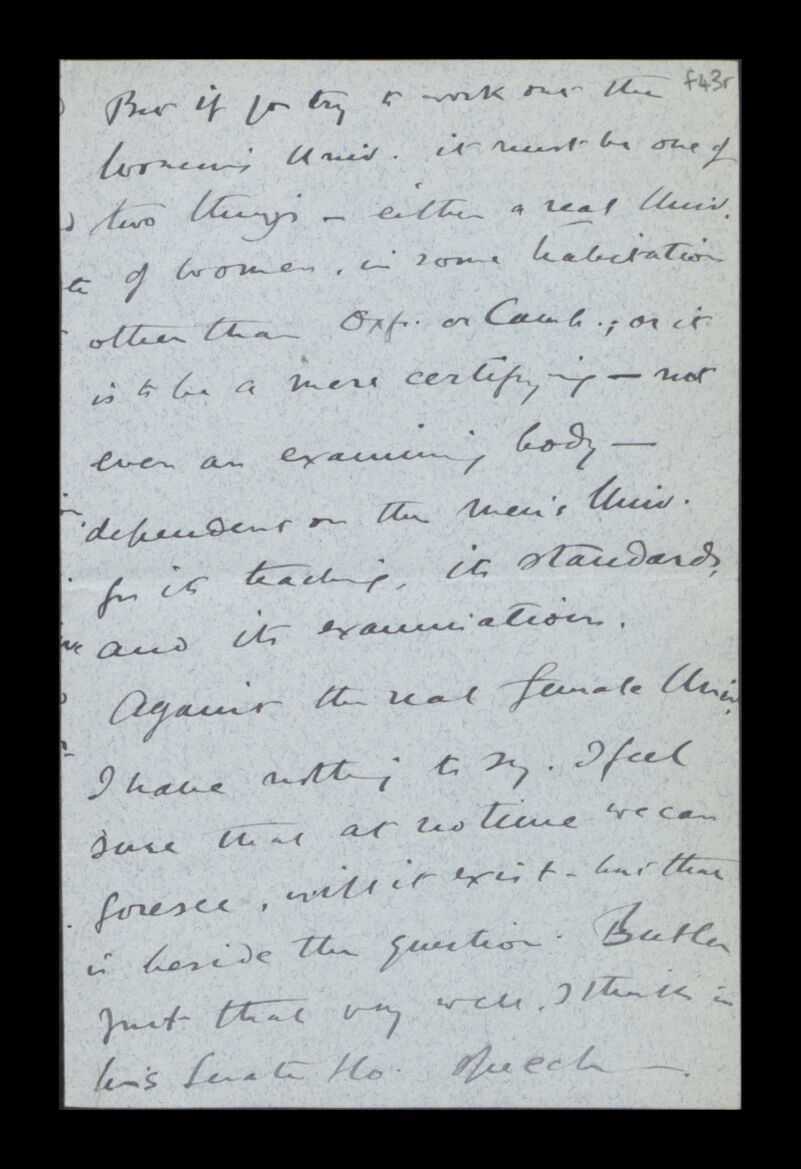 f43r
But if you try to work out the
Women's Univ. it must be one of
two things – either a real Univ.
of women, in some habitation
other than Oxf. or Camb.; or it
is to be a mere certifying – not
even an examining body –
dependent on the men's Univ.
for its teaching, its standards,
and its examinations.
Against the real female Univ.
I have nothing to say. I feel
sure that at no time we can
foresee, will it exist – but that
is beside the question. Butler
put that very well, I think in
his Senate Ho. speech –.